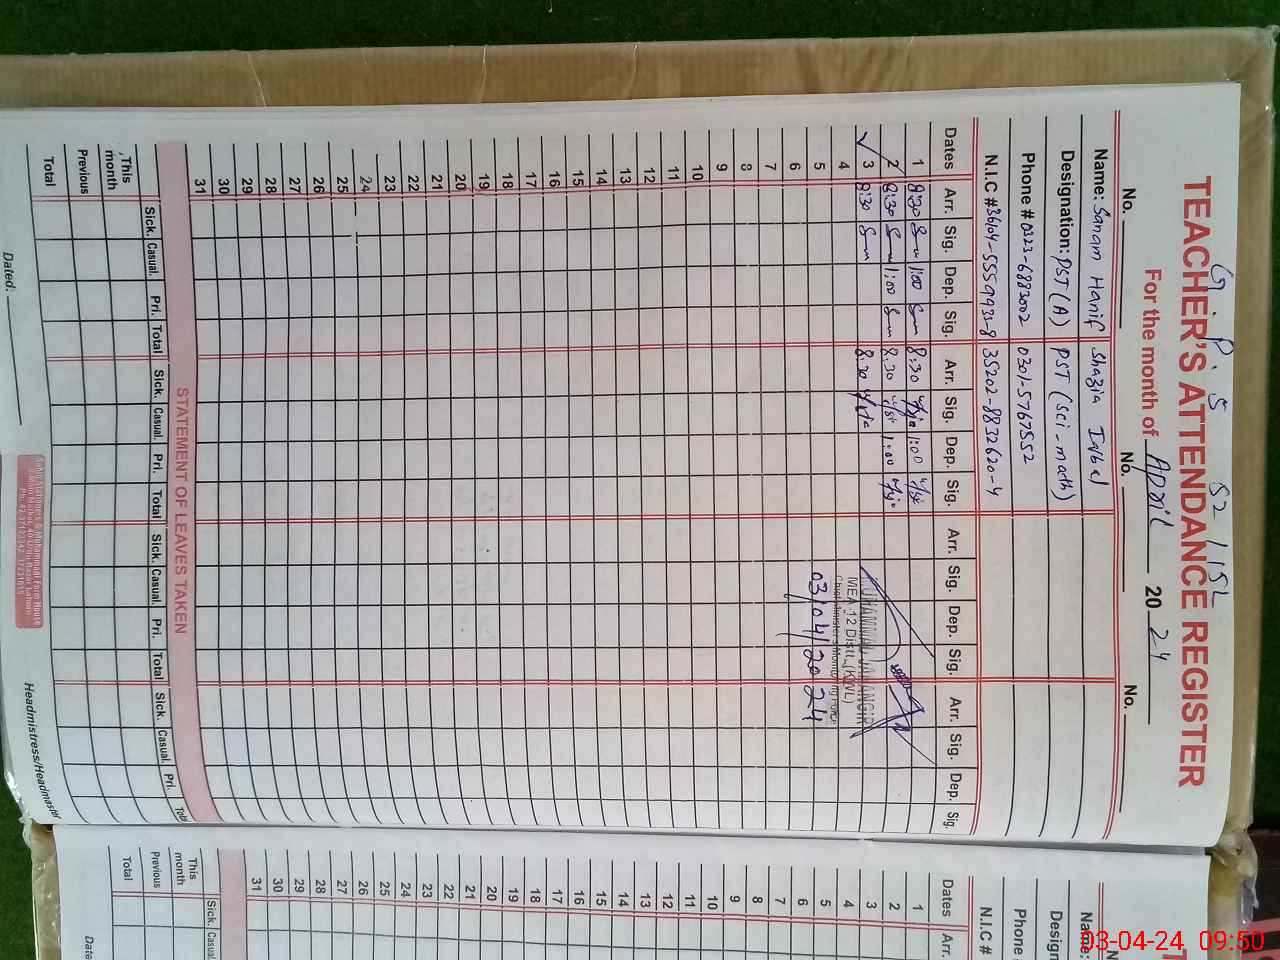 G.P.S 52/15L
TEACHER'S ATTENDANCE REGISTER
For the month of April 2024
No. No. No.
Name: Sanam Hanif Shazia Iqbal
Designation: PST (A) PST (Sci-math)
Phone # 0323-6883002 0301-5767552
N.I.C # 35202-8832620-4
Dates Arr. Sig. Dep. Sig. Arr. Sig. Dep. Sig. Arr. Sig. Dep. Sig. Arr. Sig. Dep. Sig.
1 8:30 1:00 8:30 1:00
2 8:30 1:00 8:30 1:00
3 8:30 8:30
MUHAMMAD JAHANGIR
MEA 12 Distt. (KWL)
Chief Minister's Monitoring Force
03/04/2024
4
5
6
7
8
9
10
11
12
13
14
15
16
17
18
19
20
21
22
23
24
25
26
27
28
29
30
31
STATEMENT OF LEAVES TAKEN
Sick. Casual. Pri. Total Sick. Casual. Pri. Total Sick. Casual. Pri. Total Sick. Casual. Pri. Total
This month
Previous
Total
Dated: Headmistress/Headmaster
Name:
Design
Phone
N.I.C #
Dates Arr.
1
2
3
4
5
6
7
8
9
10
11
12
13
14
15
16
17
18
19
20
21
22
23
24
25
26
27
28
29
30
31
Sick. Casual.
This month
Previous
Total
Date
03-04-24 09:50